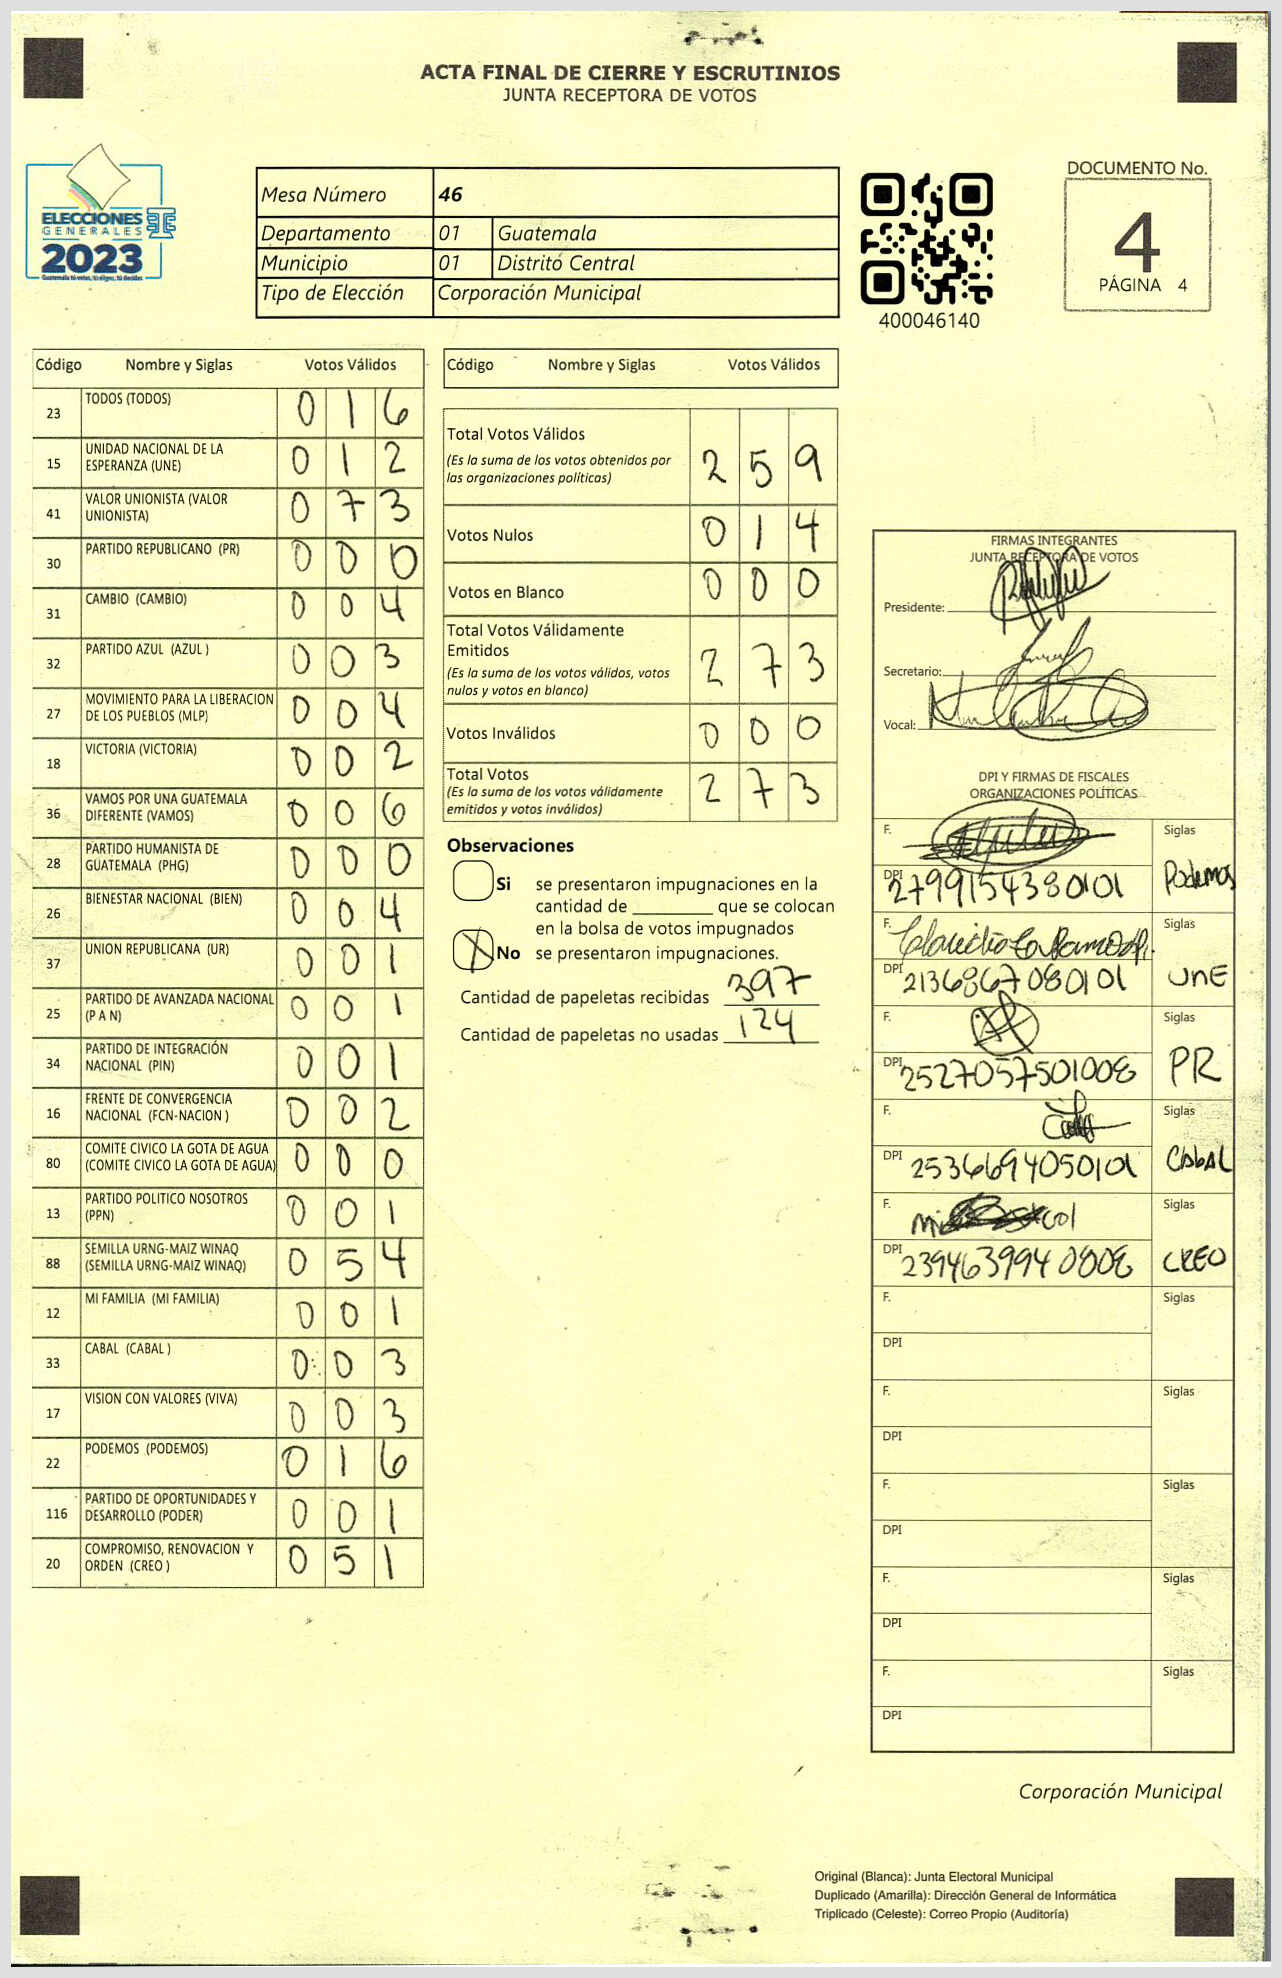 ACTA FINAL DE CIERRE Y ESCRUTINIOS
JUNTA RECEPTORA DE VOTOS
ELECCIONES
GENERALES
2023
Mesa Número 46
Departamento 01 Guatemala
Municipio 01 Distrito Central
Tipo de Elección Corporación Municipal
400046140
DOCUMENTO No.
4
PÁGINA 4
Código Nombre y Siglas Votos Válidos
23 TODOS (TODOS) 0 1 6
15 UNIDAD NACIONAL DE LA
ESPERANZA (UNE) 0 1 2
41 VALOR UNIONISTA (VALOR
UNIONISTA) 0 7 3
30 PARTIDO REPUBLICANO (PR) 0 0 0
31 CAMBIO (CAMBIO) 0 0 4
32 PARTIDO AZUL (AZUL ) 0 0 3
27 MOVIMIENTO PARA LA LIBERACION
DE LOS PUEBLOS (MLP) 0 0 4
18 VICTORIA (VICTORIA) 0 0 2
36 VAMOS POR UNA GUATEMALA
DIFERENTE (VAMOS) 0 0 6
28 PARTIDO HUMANISTA DE
GUATEMALA (PHG) 0 0 0
26 BIENESTAR NACIONAL (BIEN) 0 0 4
37 UNION REPUBLICANA (UR) 0 0 1
25 PARTIDO DE AVANZADA NACIONAL
(P A N) 0 0 1
34 PARTIDO DE INTEGRACIÓN
NACIONAL (PIN) 0 0 1
16 FRENTE DE CONVERGENCIA
NACIONAL (FCN-NACION ) 0 0 2
80 COMITE CIVICO LA GOTA DE AGUA
(COMITE CIVICO LA GOTA DE AGUA) 0 0 0
13 PARTIDO POLITICO NOSOTROS
(PPN) 0 0 1
88 SEMILLA URNG-MAIZ WINAQ
(SEMILLA URNG-MAIZ WINAQ) 0 5 4
12 MI FAMILIA (MI FAMILIA) 0 0 1
33 CABAL (CABAL ) 0 0 3
17 VISION CON VALORES (VIVA) 0 0 3
22 PODEMOS (PODEMOS) 0 1 6
116 PARTIDO DE OPORTUNIDADES Y
DESARROLLO (PODER) 0 0 1
20 COMPROMISO, RENOVACION Y
ORDEN (CREO ) 0 5 1
Código Nombre y Siglas Votos Válidos
Total Votos Válidos
(Es la suma de los votos obtenidos por
las organizaciones políticas) 2 5 9
Votos Nulos 0 1 4
Votos en Blanco 0 0 0
Total Votos Válidamente
Emitidos
(Es la suma de los votos válidos, votos
nulos y votos en blanco) 2 7 3
Votos Inválidos 0 0 0
Total Votos
(Es la suma de los votos válidamente
emitidos y votos inválidos) 2 7 3
Observaciones
Si se presentaron impugnaciones en la
cantidad de ________ que se colocan
en la bolsa de votos impugnados
X No se presentaron impugnaciones.
Cantidad de papeletas recibidas 397
Cantidad de papeletas no usadas 124
FIRMAS INTEGRANTES
JUNTA RECEPTORA DE VOTOS
Presidente:
Secretario:
Vocal:
DPI Y FIRMAS DE FISCALES
ORGANIZACIONES POLÍTICAS
F. Siglas
DPI 2799154380101 Podemos
F. Siglas
DPI 2136867080101 UNE
F. Siglas
DPI 2527057501008 PR
F. Siglas
DPI 2536694050101 CABAL
F. Siglas
DPI 2394639940808 CREO
F. Siglas
DPI
F. Siglas
DPI
F. Siglas
DPI
F. Siglas
DPI
F. Siglas
DPI
Corporación Municipal
Original (Blanca): Junta Electoral Municipal
Duplicado (Amarilla): Dirección General de Informática
Triplicado (Celeste): Correo Propio (Auditoría)